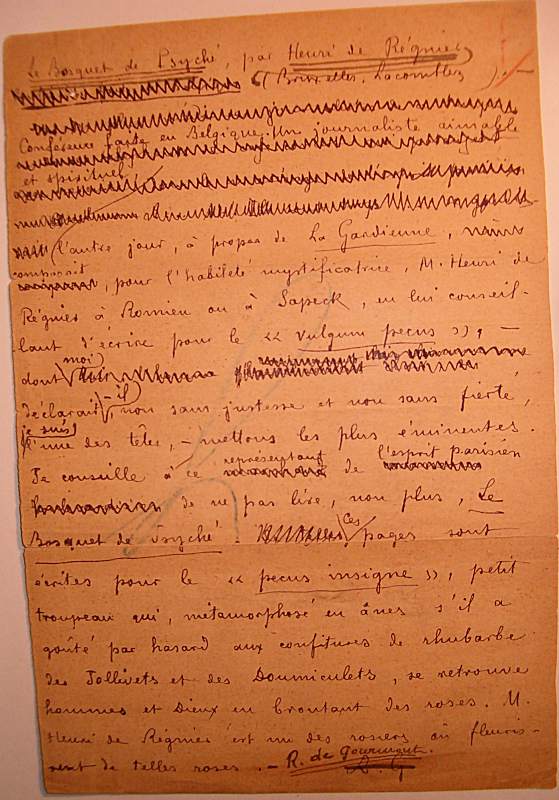 Le Bosquet de Psyché, par Henri de Régnier
(Bruxelles, Lacomblez). —
Conférence faite en Belgique. Un journaliste aimable
et spirituel,
l'autre jour, à propos de La Gardienne,
comparait, pour l'habileté mystificatrice, M. Henri de
Régnier à Romieu ou à Sapeck, en lui conseil-
lant d'écrire pour le « vulgum pecus », —
dont moi,
déclarait-il, non sans justesse et non sans fierté,
je suis l'une des têtes, — mettons les plus éminentes.
Je conseille à ce représentant de l'esprit parisien
de ne pas lire, non plus, Le
Bosquet de Psyché. Ces pages sont
écrites pour le « pecus insigne », petit
troupeau qui, métamorphosé en ânes s'il a
goûté par hasard aux confitures de rhubarbe
des Tollivets et des Doumiculets, se retrouve
hommes et Dieux en broutant des roses. M.
Henri de Régnier est un des rosiers où fleuris-
sent de telles roses. — R. de Gourmont.
R. G